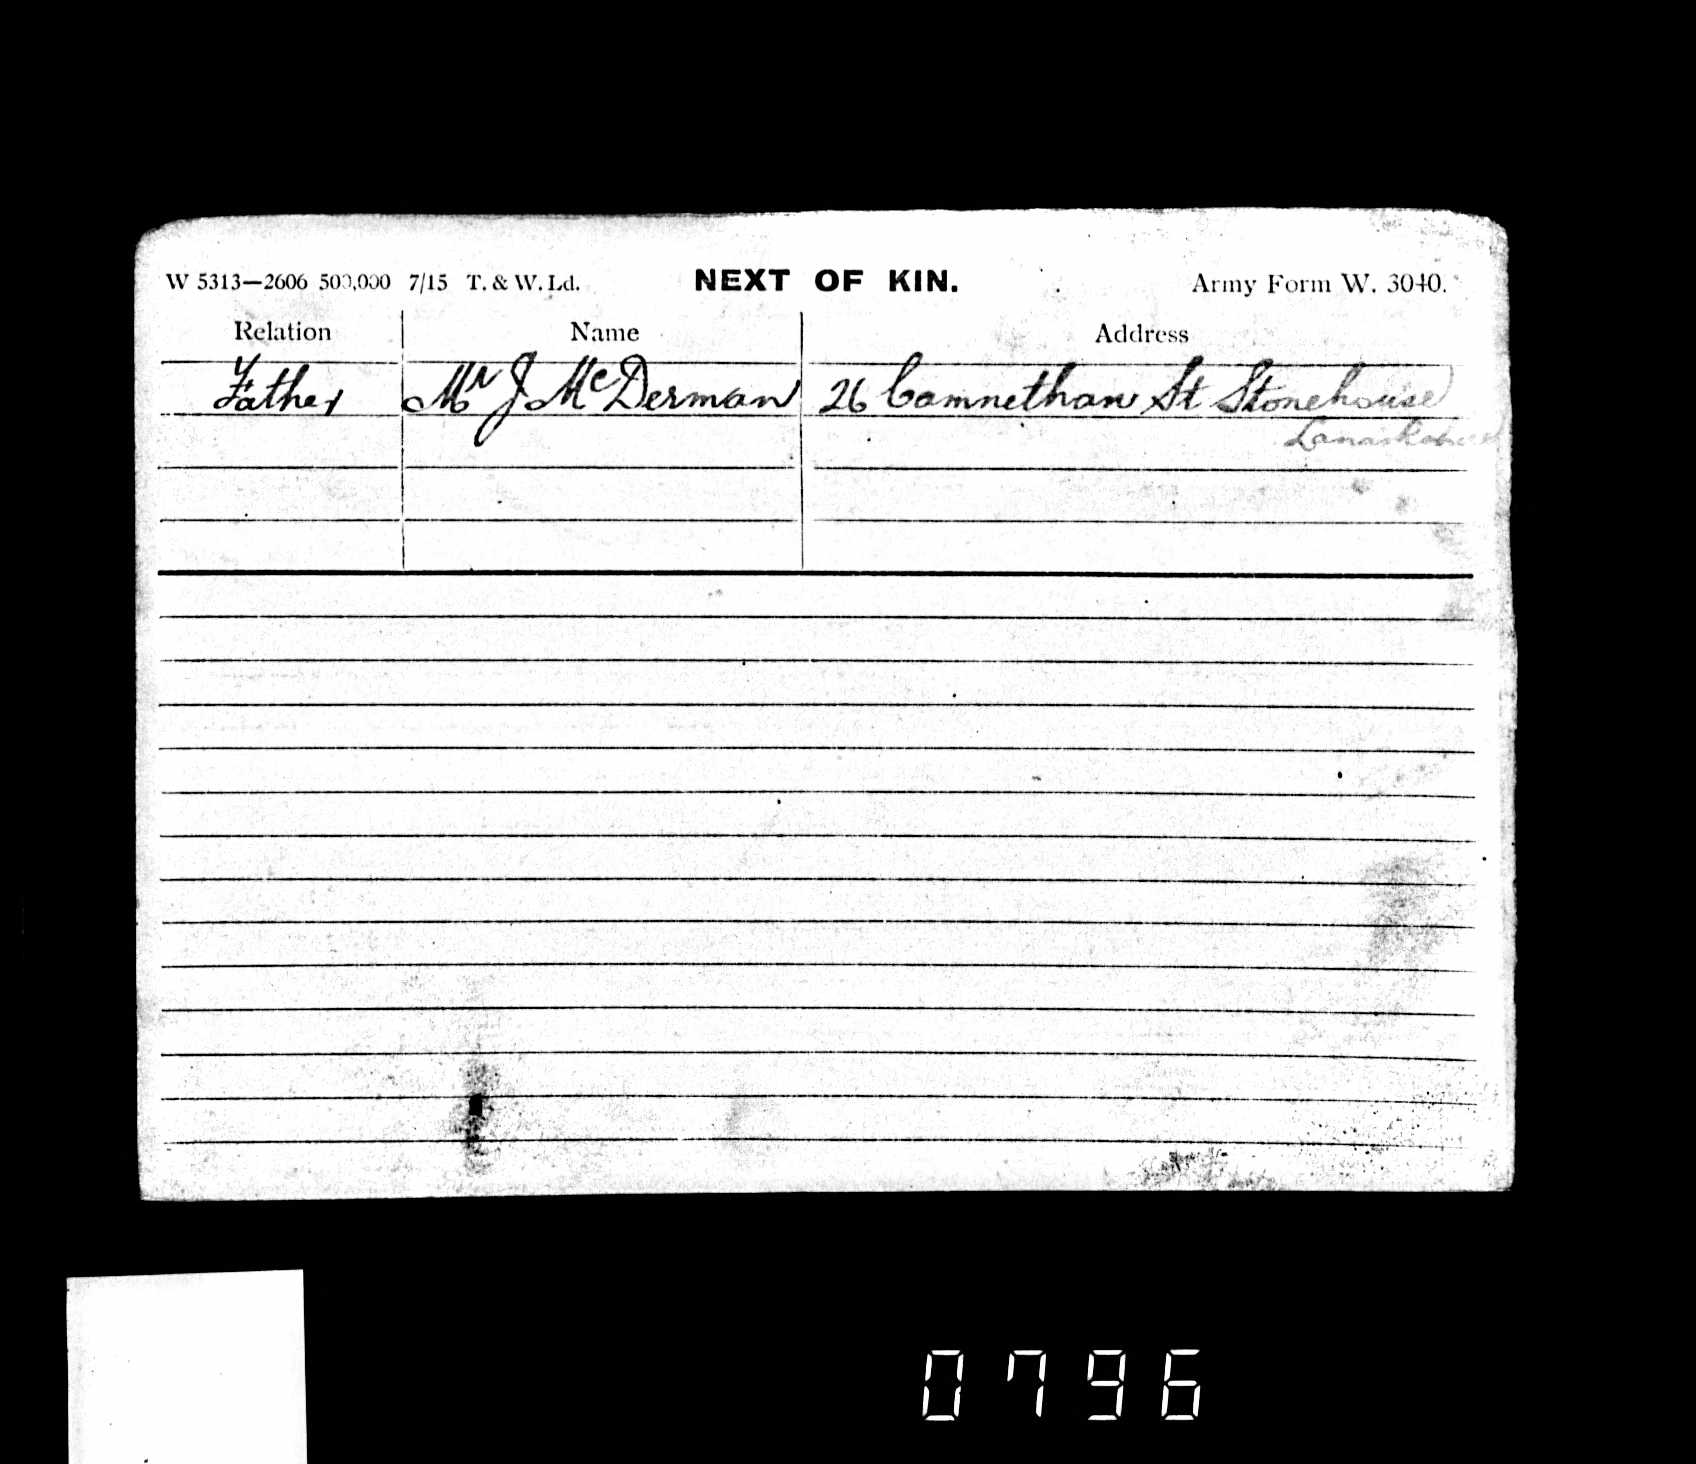 W 5313—2606 500,000 7/15 T. & W. Ld. NEXT OF KIN. Army Form W. 3040.
Relation Name Address
Father Mr J McDerman 26 Camnethan St Stonehouse
0796